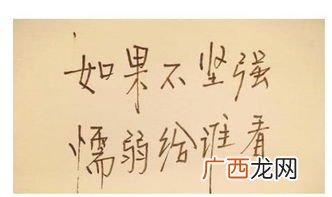 如果不坚强
懦弱给谁看
广西龙网